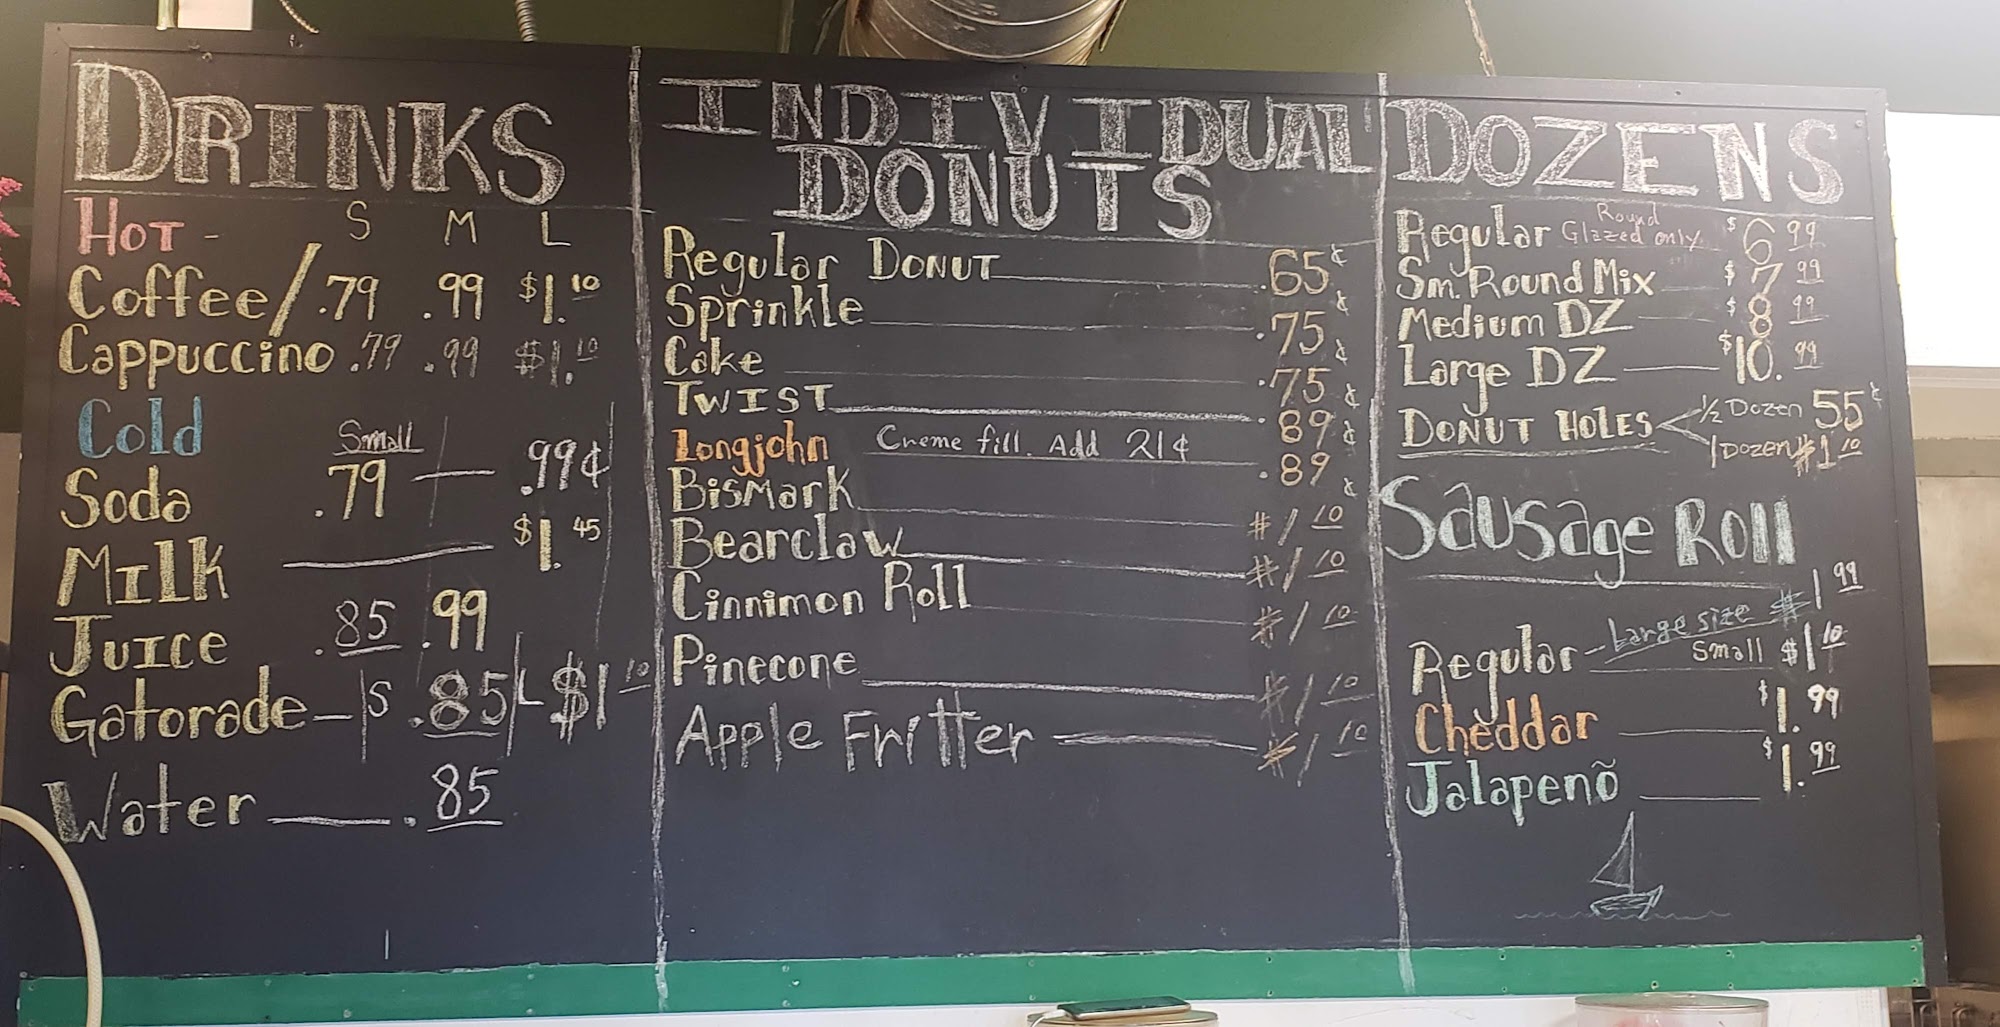 DRINKS
HOT - S M L
Coffee/ .79 .99 $1.10
Cappuccino .79 .99 $1.10
Cold
Small
Soda .79 — .99¢
Milk $1.45
Juice .85 .99
Gatorade - S .85 L $1.10
Water .85
INDIVIDUAL
DONUTS
Regular DONUT .65¢
Sprinkle .75¢
Cake .75¢
TWIST .89¢
Longjohn Creme fill. Add 21¢ .89¢
Bismark $1.10¢
Bearclaw $1.10
Cinnimon Roll $1.10
Pinecone $1.10
Apple Fritter $1.10
DOZENS
Regular Round Glazed only $6.99
Sm. Round Mix $7.99
Medium DZ $8.99
Large DZ $10.99
DONUT HOLES < 1/2 Dozen 55¢
1 Dozen $1.10
Sausage Roll
Regular - Large size $1.99
Small $1.10
Cheddar $1.99
Jalapenõ $1.99